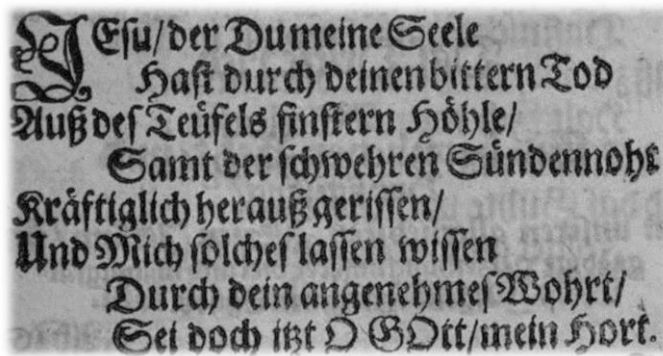 JEsu/der Du meine Seele
Hast durch deinen bittern Tod
Auß des Teüfels finstern Höhle/
Samt der schwehren Sündennoht
Kräftiglich herauß gerissen/
Und Mich solches lassen wissen
Durch dein angenehmes Wohrt/
Sei doch itzt O GOtt/mein Hort.